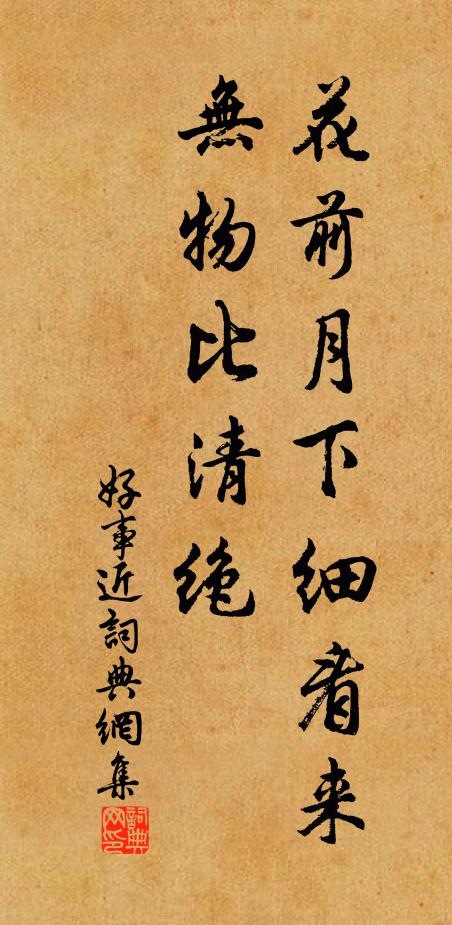 花前月下細看来
無物比清绝
好事近詞典網集
詞典网印